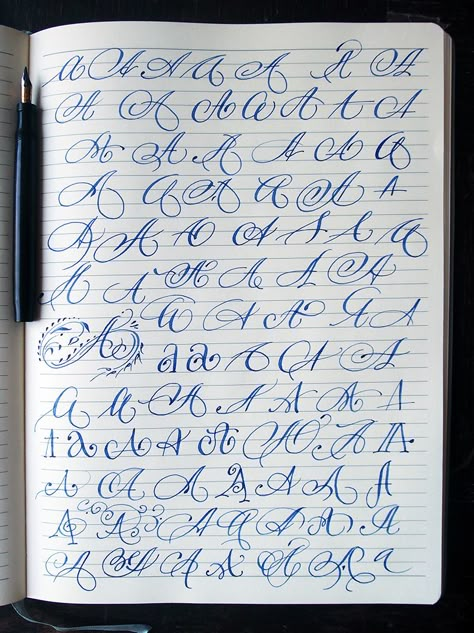 a A A A A A A
A A A A A A A
A A A A A A
A A A A A A
A A A A A A A
A A A A A A
A A A A A
A a a A A A A
A A A A A A A
A a A A A A A A
A A A A A A A
A A A A A A A
A A A A A A a